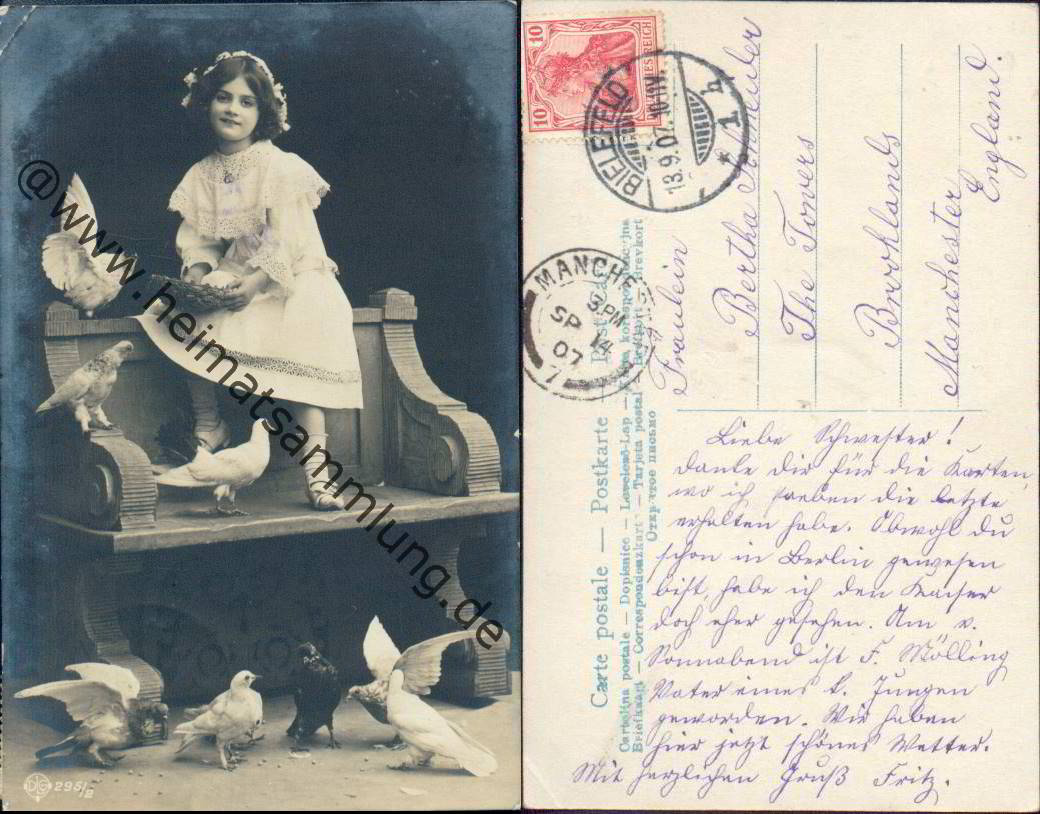 @www.heimatsammlung.de
295/2
10
10
BIELEFELD
13.9.07. 10-11V.
* 1 b
MANCHR
3 PM
SP 14
07
7
Fraulein
Bertha
The Towers
Brooklands
Manchester
England.
Carte postale — Postkarte — Post
Cartolina postale — Dopisnice — Levelező-Lap —
Briefkaart — Correspondenzkart — Tarjeta postal — Brevkort
Открытое письмо
Liebe Schwester!
danke dir für die Karten,
wo ich soeben die letzte
erhalten habe. Obwohl du
schon in Berlin gewesen
bist, habe ich den Kaiser
doch eher gesehen. Am v.
Sonnabend ist F. Mölling
Vater eines k. Jungen
geworden. Wir haben
hier jetzt schönes Wetter.
Mit herzlichen Gruß Fritz.